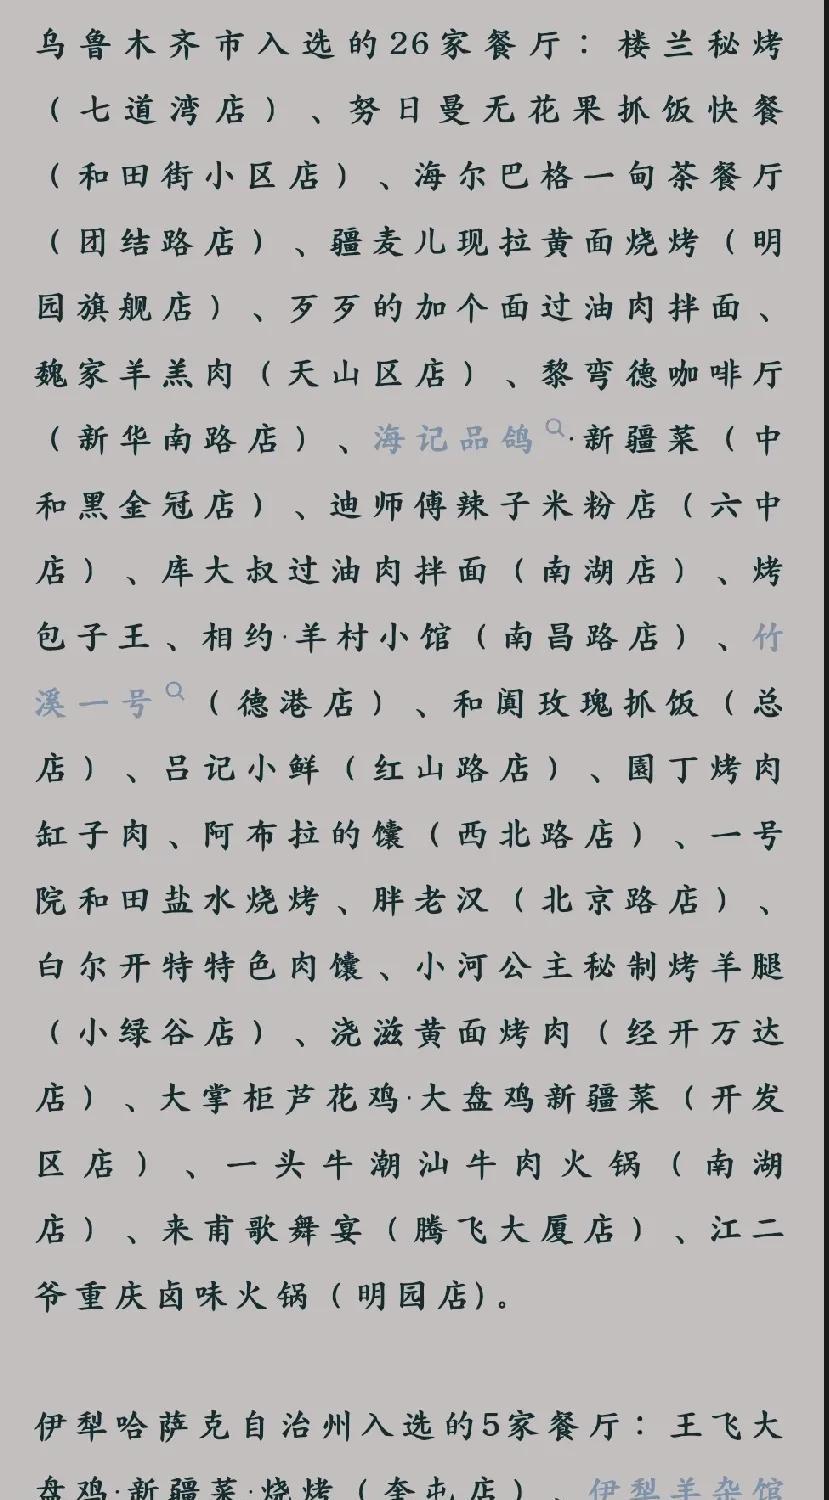 乌鲁木齐市入选的26家餐厅：楼兰秘烤
（七道湾店）、努日曼无花果抓饭快餐
（和田街小区店）、海尔巴格一甸茶餐厅
（团结路店）、疆麦儿现拉黄面烧烤（明
园旗舰店）、歹歹的加个面过油肉拌面、
魏家羊羔肉（天山区店）、黎弯德咖啡厅
（新华南路店）、海记品鸽·新疆菜（中
和黑金冠店）、迪师傅辣子米粉店（六中
店）、库大叔过油肉拌面（南湖店）、烤
包子王、相约·羊村小馆（南昌路店）、竹
溪一号（德港店）、和阗玫瑰抓饭（总
店）、吕记小鲜（红山路店）、園丁烤肉
缸子肉、阿布拉的馕（西北路店）、一号
院和田盐水烧烤、胖老汉（北京路店）、
白尔开特特色肉馕、小河公主秘制烤羊腿
（小绿谷店）、浇滋黄面烤肉（经开万达
店）、大掌柜芦花鸡·大盘鸡新疆菜（开发
区店）、一头牛潮汕牛肉火锅（南湖
店）、来甫歌舞宴（腾飞大厦店）、江二
爷重庆卤味火锅（明园店)。
伊犁哈萨克自治州入选的5家餐厅：王飞大
盘鸡·新疆菜·烧烤（奎屯店）、伊犁羊杂馆